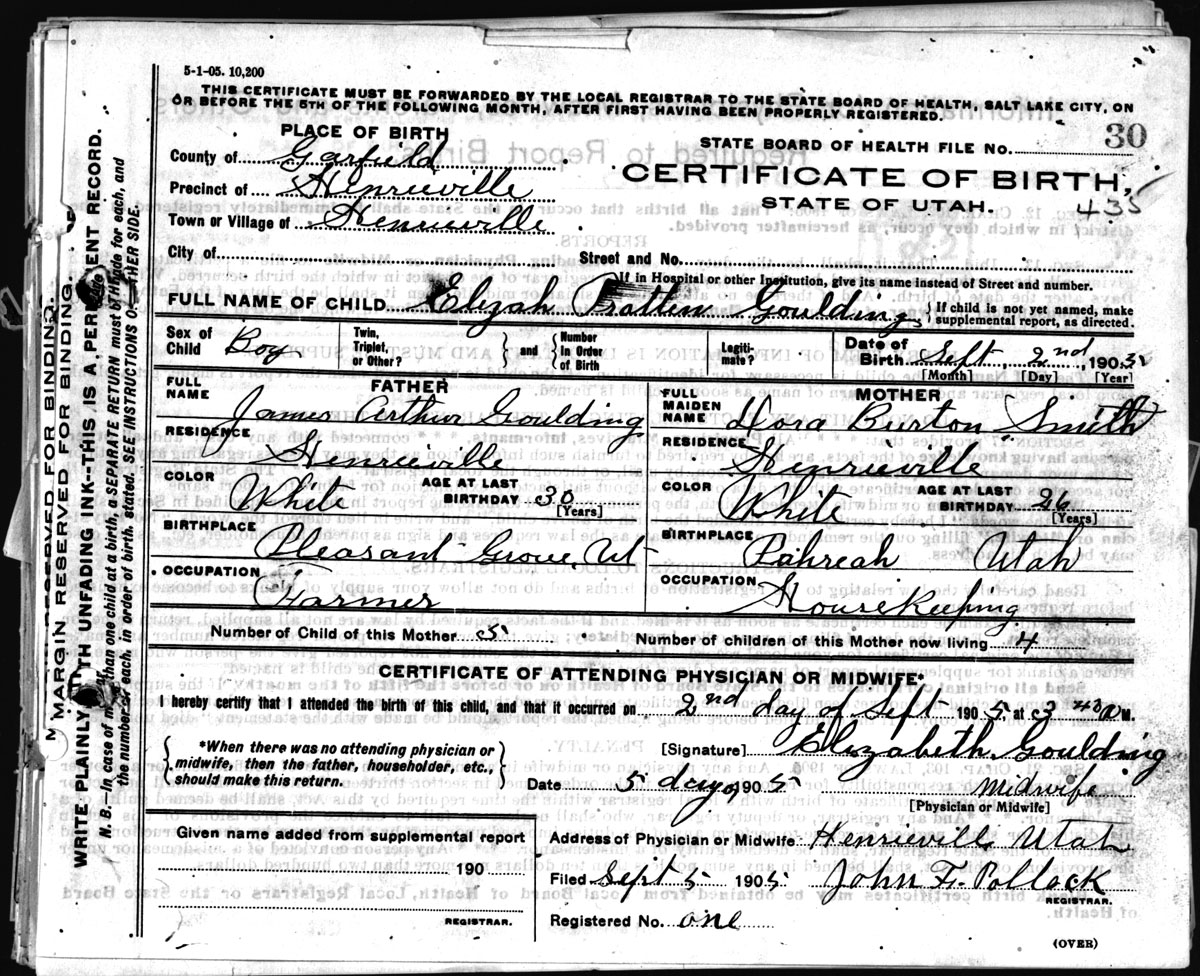 5-1-05. 10,200
THIS CERTIFICATE MUST BE FORWARDED BY THE LOCAL REGISTRAR TO THE STATE BOARD OF HEALTH, SALT LAKE CITY, ON
OR BEFORE THE 5TH OF THE FOLLOWING MONTH, AFTER FIRST HAVING BEEN PROPERLY REGISTERED.
PLACE OF BIRTH
STATE BOARD OF HEALTH FILE NO. 30
County of Garfield
CERTIFICATE OF BIRTH,
Precinct of Henrieville
STATE OF UTAH. 435
Town or Village of Henrieville
City of
Street and No.
If in Hospital or other Institution, give its name instead of Street and number.
FULL NAME OF CHILD Elizah Goulding { If child is not yet named, make supplemental report, as directed.
Sex of Child Boy Twin, Triplet, or Other? } and { Number In Order of Birth Legitimate? Date of Birth Sept 2nd 1905
[Month] [Day] [Year]
FATHER
MOTHER
FULL NAME James Arthur Goulding
FULL MAIDEN NAME Dora Burton Smith
RESIDENCE Henrieville
RESIDENCE Henrieville
COLOR White AGE AT LAST BIRTHDAY 30 [Years]
COLOR White AGE AT LAST BIRTHDAY 26 [Years]
BIRTHPLACE Pleasant Grove, Ut
BIRTHPLACE Pahreah Utah
OCCUPATION Farmer
OCCUPATION Housekeeping
Number of Child of this Mother 5
Number of children of this Mother now living 4
CERTIFICATE OF ATTENDING PHYSICIAN OR MIDWIFE*
I hereby certify that I attended the birth of this child, and that it occurred on 2nd day of Sept 1905, at 3 40 A M.
{ *When there was no attending physician or midwife, then the father, householder, etc., should make this return. }
[Signature] Elizabeth Goulding
Date 5 day of 1905 Midwife
[Physician or Midwife]
Given name added from supplemental report
190
REGISTRAR.
Address of Physician or Midwife Henrieville Utah
Filed Sept 5 1905 John F. Pollock
REGISTRAR.
Registered No. one
(OVER)
MARGIN RESERVED FOR BINDING.
WRITE PLAINLY WITH UNFADING INK--THIS IS A PERMANENT RECORD.
N. B.--In case of more than one child at a birth, a SEPARATE RETURN must be made for each, and
the number of each, in order of birth, stated. SEE INSTRUCTIONS ON OTHER SIDE.